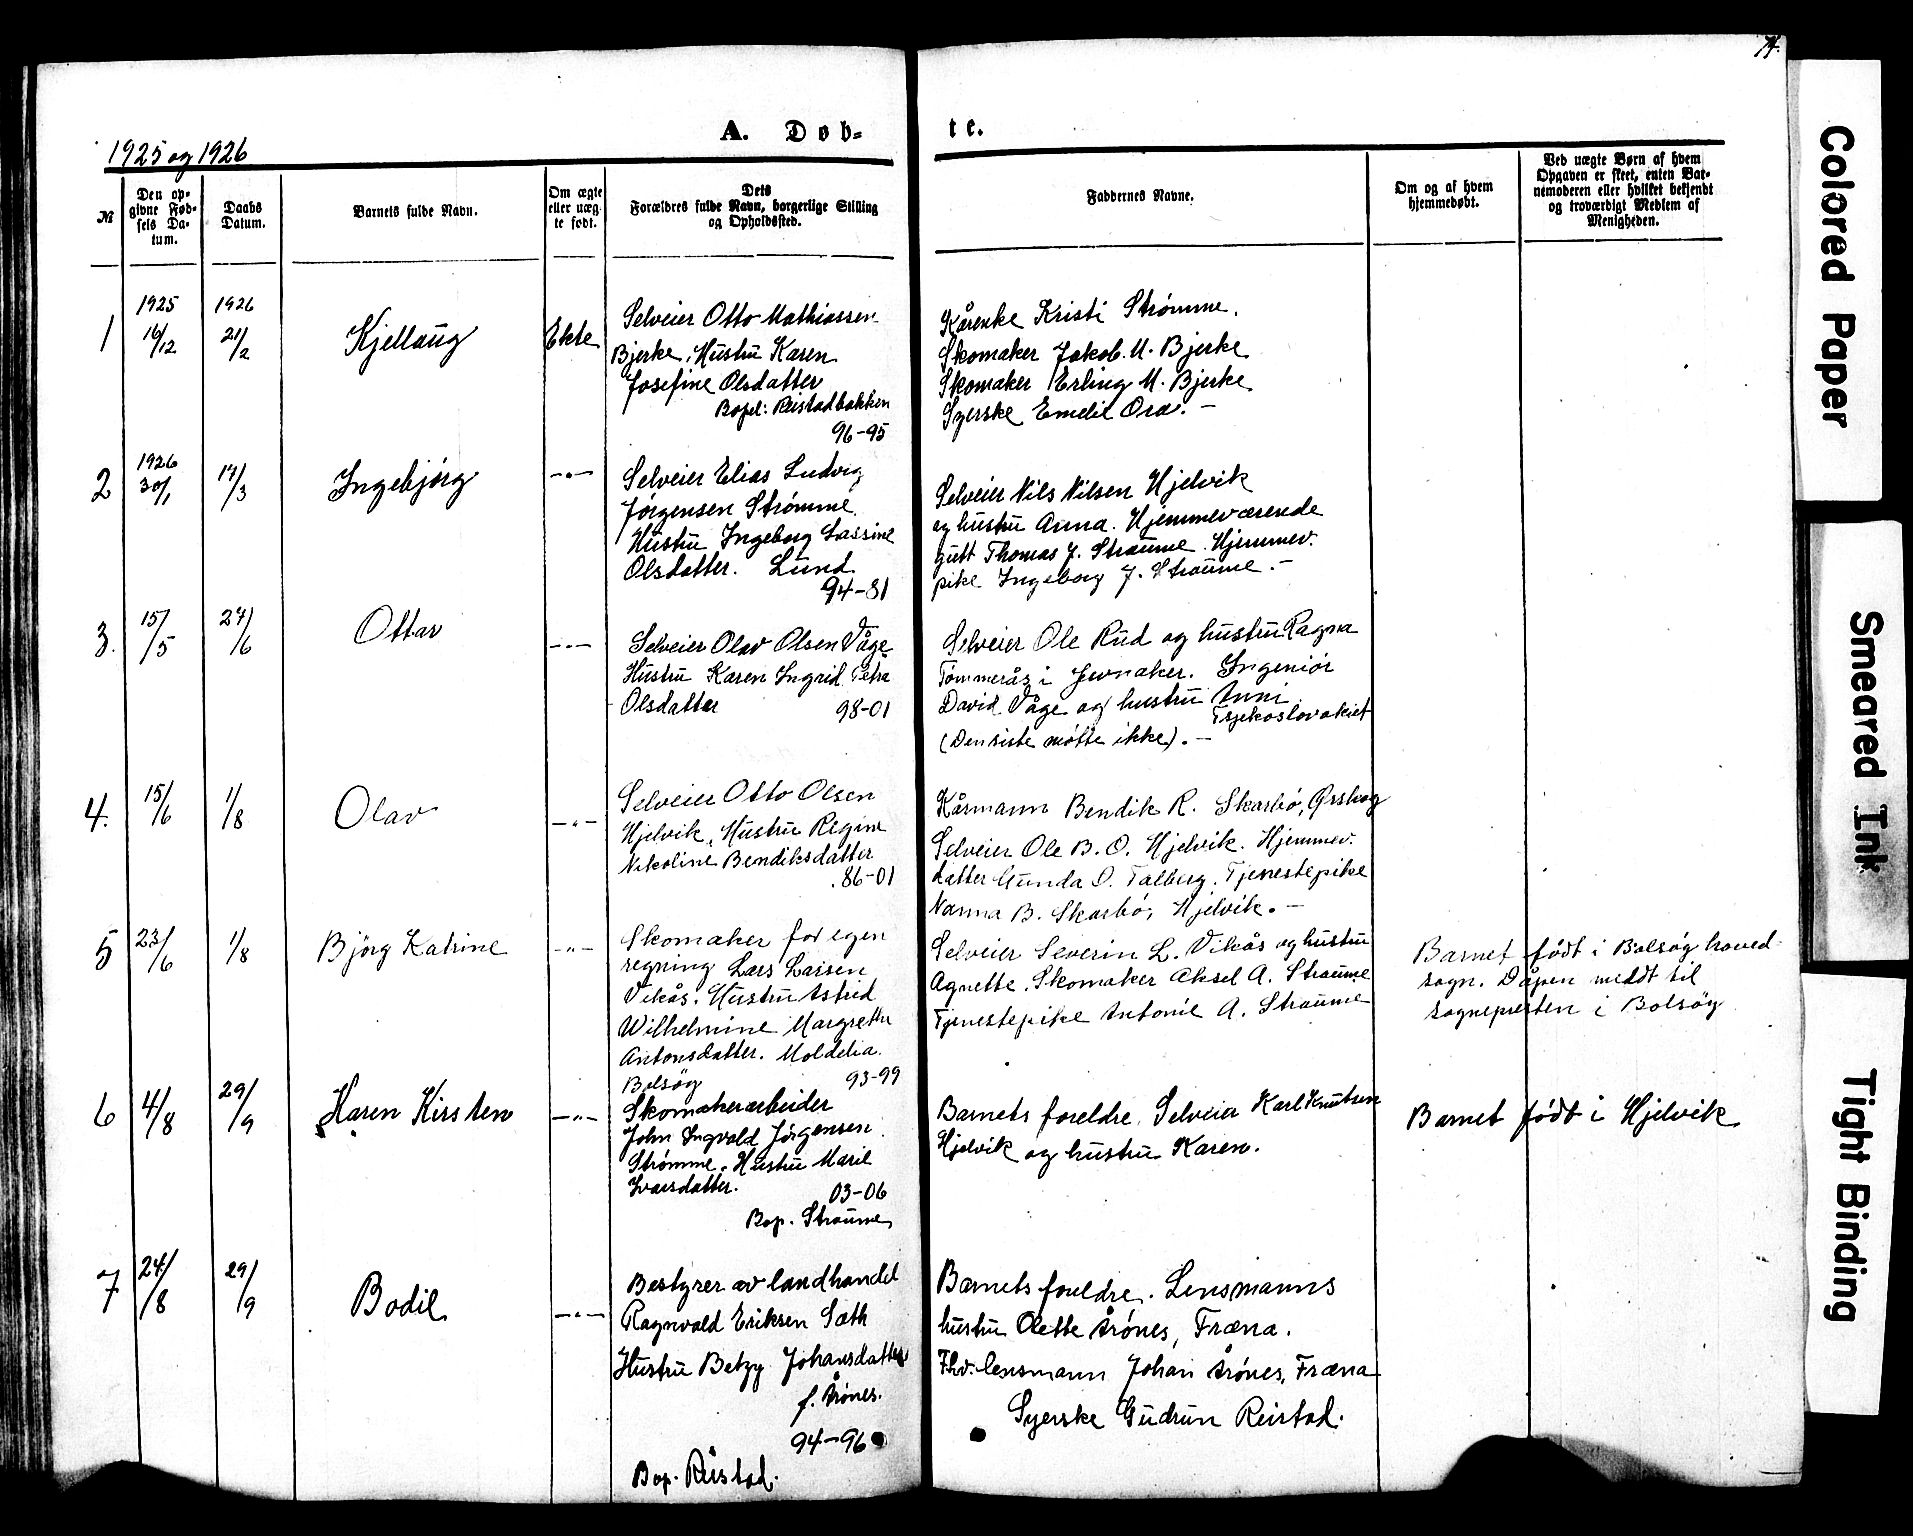 74.
A. Døb-
te.
1925 og 1926
№
Den op-
givne Fød-
sels Da-
tum.
Daabs
Datum.
Barnets fulde Navn.
Om ægte
eller uæg-
te født.
Dets
Forældres fulde Navn, borgerlige Stilling
og Opholdssted.
Faddernes Navne.
Om og af hvem
hjemmedøbt.
Ved uægte Børn af hvem
Opgaven er skeet, enten Bar-
nemoderen eller hvilket bekjendt
og troværdigt Medlem af
Menigheden.
1
1925
16/12
1926
21/2
Kjellaug
Ekte
Selveier Otto Mathiassen
Bjerke, Hustru Karen
Josefine Olsdatter
Bopel: Reistadbakken
96-95
Kårenke Kristi Strømme.
Skomaker Jakob. M. Bjerke
Skomaker Erling M. Bjerke
Syerske Emelie Orø. -
2
1926
30/1
14/3
Ingebjørg
-"-
Selveier Elias Ludvig
Jørgensen Strømme.
Hustru Ingeborg Lassine
Olsdatter. Lund
94-81
Selveier Nils Nilsen Hjelvik
og hustru Anna. Hjemmeværende
gutt Thomas J. Straume. Hjemmev.
pike Ingeborg J. Straume. -
3.
15/5
27/6
Ottar
-"-
Selveier Olav Olsen Våge
Hustru Karen Ingrid Petra
Olsdatter 98-01
Selveier Ole Rud og hustru Ragna
Tømmerås i Jevnaker. Ingeniør
David Våge og hustru Anni
Tsjekoslovakiet
(Den siste møtte ikke). -
4.
15/6
1/8
Olav
-"-
Selveier Otto Olsen
Hjelvik, Hustru Regine
Nikoline Bendiksdatter
86-01
Kårmann Bendik R. Skarbø, Ørskog
Selveier Ole B. O. Hjelvik. Hjemmev.
datter Gunda O. Talberg. Tjenestepike
Nanna B. Skarbø, Hjelvik. -
5
23/6
1/8
Bjørg Katrine
-"-
Skomaker for egen
regning Lars Larsen
Vikås. Hustru Astrid
Wilhelmine Margrethe
Antonsdatter. Moldelia.
Bolsøy 93-99
Selveier Severin L. Vikås og hustru
Agnette. Skomaker Aksel A. Straume
Tjenestepike Antonie A. Straume
Barnet født i Bolsøy hoved-
sogn. Dåpen meddt til
sognepresten i Bolsøy
6
4/8
29/9
Karen Kirsten
-"-
Skomakerarbeider
John Ingvald Jørgensen
Strømme. Hustru Marie
Ivarsdatter. 03-06
Bop. Straume
Barnets foreldre. Selveier Karl Knutsen
Hjelvik og hustru Karen.
Barnet født i Hjelvik
7
24/8
29/9
Bodil
-"-
Bestyrer av landhandel
Ragnvald Eriksen Sæth
Hustru Betzy Johansdatter
f. Årønes.
94-96
Bop. Reistad.
Barnets foreldre. Lensmanns
hustru Olette Årønes, Fræna.
Fhv. lensmann Johan Årønes, Fræna
Syerske Gudrun Reistad.
Colored Paper
Smeared Ink
Tight Binding